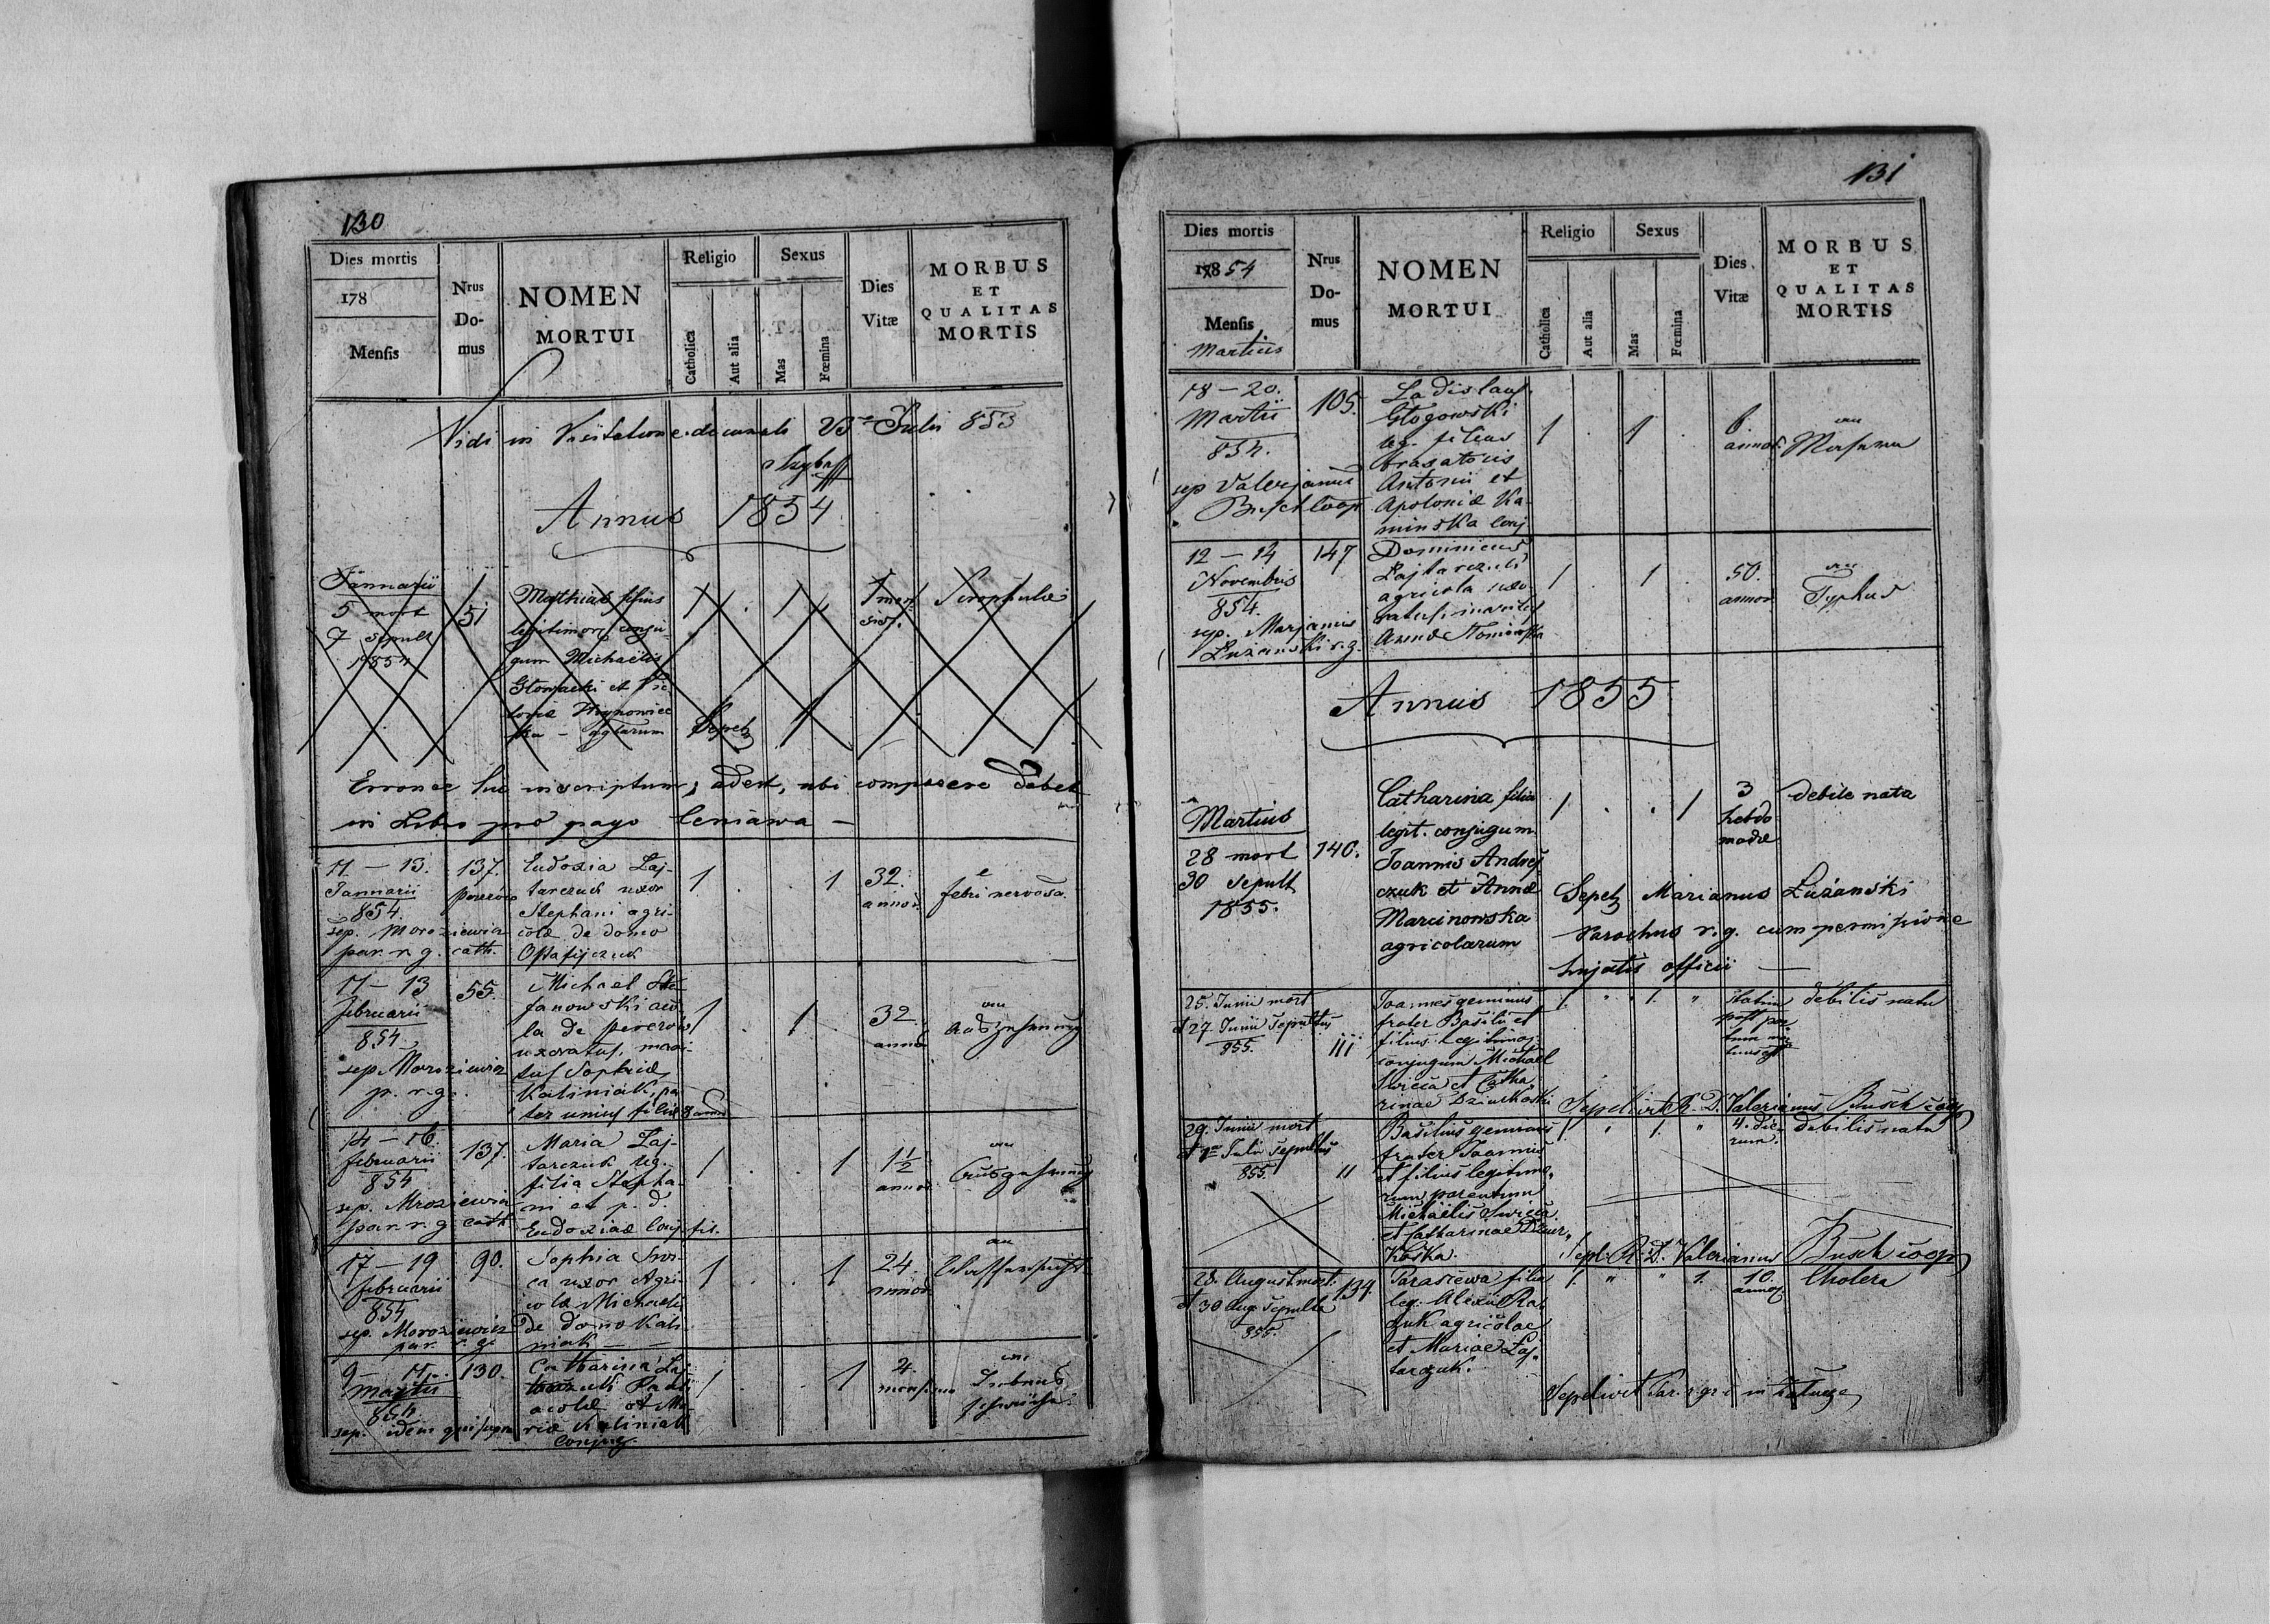 130
Dies mortis
178
Mensis
Nrus Do- mus
NOMEN
MORTUI
Religio
Catholica
Aut alia
Sexus
Mas
Fœmina
Dies Vitæ
MORBUS
ET
QUALITAS
MORTIS
Vidi in Visitatione decanali Julii 853
Annus 1854
Januarii
5 mort
7 sepult
1854
51
Mathias filius
legitimor conju-
gum Michaelis
Głowacki et Vic
toriæ
agrarum
1 . 1
1 men
sis.
Scrophulæ
Sepel
Erronee huc inscriptum, adest, ubi comparere debet
in Libro pro pago Leniawa –
11 – 13.
Januarii
854.
sep. Moroziewicz
par. r. g. cath.
137.
Eudoxia Laj-
tarczuk uxor
Stephani agri-
colæ de domo
1 . . 1
32.
annor.
e
febri nervosa.
11 – 13
februarii
854
sep. Moroziewicz
p. r. g.
55.
Michael Ste-
fanowski aco-
la de
uxoratus, mari-
tus Sophiæ
Kaliniak, pa-
ter unius filii 8 annor
1 . 1 .
32.
annor
an
Auszehrung
14 – 16.
februarii
854
sep. Mroziewicz
par. r. g. cath
137.
Maria Laj-
tarczuk leg.
filia Stepha-
ni et p. d.
Eudoxiæ conj. fil.
1 . . 1
1½
annor
an
Auszehrung
17 – 19
februarii
854
sep. Moroziewicz
par. r. g.
90.
Sophia Swi-
ca uxor Agri-
colæ Michaelis
de domo Kali
niak —
1 . . 1
24.
annor
an
Wassersucht
9 – 11.
Martii
854
sep. idem qui supra
130.
Catharina Laj-
tarczuk Pauli
acolæ et Ma-
riæ Kaliniak
Conjug.
1 . . 1
2.
mensium
an
131
Dies mortis
1854
Mensis
Martius
Nrus Do- mus
NOMEN
MORTUI
Religio
Catholica
Aut alia
Sexus
Mas
Fœmina
Dies Vitæ
MORBUS
ET
QUALITAS
MORTIS
18 – 20.
Martii
854.
sep Valerjanus
Busch Coop
105.
Ladislaus
Głogowski
leg. filius
braxatoris
Antonii et
Apoloniæ Ka-
minska Conj
1 . 1 .
6
annor.
an
Masern
12 – 14
Novembris
854.
sep. Marjanus
Luzanski r. g.
147
Dominicus
Lajtarczuk
agricola uxo-
ratus, maritus
1 . 1 .
50.
annor
an
Typhus
Annus 1855
Martius
28 mort
30 sepult
1855.
140.
Catharina filia
legit. conjugum
Joannis Andrej
czuk et Annæ
Marcinowska
agricolarum
1 . . 1
3
hebdo
madæ
debile nata
Sepel Marianus Łużanski
Parochus r. g. cum permissione
hujatis officii —
25. Junii mort
et 27. Junii Sepultus
855.
111
Joannes geminus
frater Basilii et
filius legitimor
conjugum Michael
Swica et Catha-
rinae Dziurkoski
1. " 1. "
statim
post par-
tum mor-
tuus est
debilis natu
Sepelivit R. D. Valerianus Busch Coop
29. Junii mort
et 1ma Julii Sepultus
855.
11
Basilius geminus
frater Joannis
et filius legitimo-
rum parentum
Michaelis Swica
et Catharinae Dziur-
koska.
1. " 1. "
4. die-
rum.
debilis natu
Sepl. R. D. Valerianus Busch coop
28. August mort.
et 30 Aug. Sepulta
855.
139.
Parasiewa filia
leg. Alexii Ra-
czuk agricolae
et Mariae Laj-
tarczuk.
1. " " 1.
10.
annor.
Cholera
Sepelivit Par. r. gr. c. in